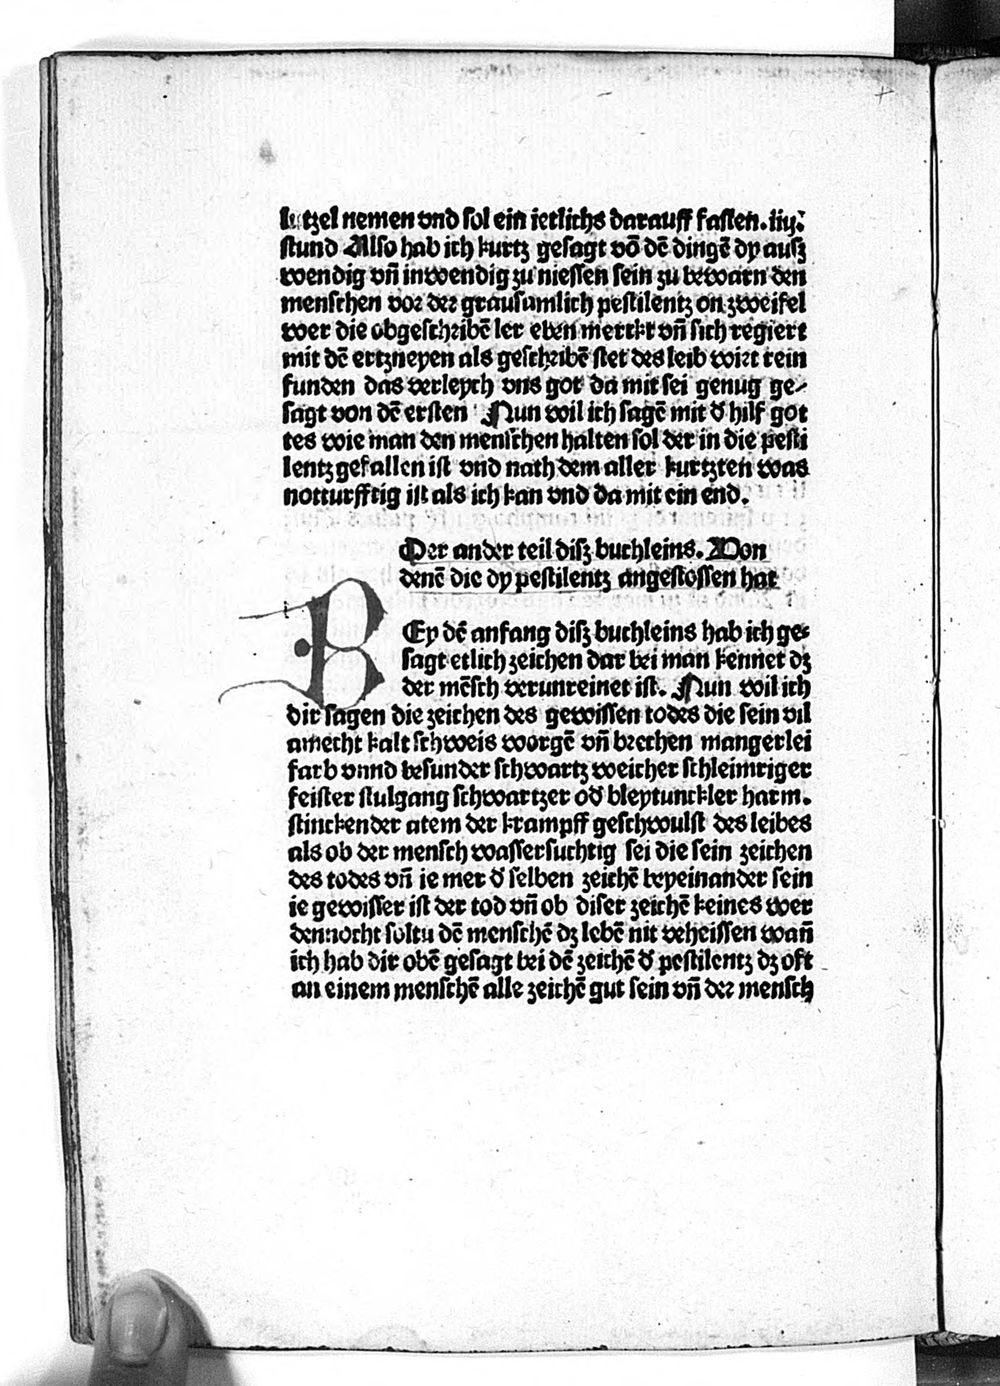 lutzel nemen vnd sol ein ietlichs darauff fasten. iiij.
stund Also hab ich kurtz gesagt vō dē dingē dy ausz
wendig vn̄ inwendig zu niessen sein zu bewarn den
menschen vor der grausamlich pestilentz on zweifel
wer die obgeschribē ler eben merckt vn̄ sich regiert
mit dē ertzneyen als geschribē stet des leib wirt rein
funden das verleych vns got da mit sei genug ge⸗
sagt von dē ersten Nun wil ich sagē mit d̓ hilf got
tes wie man den menschen halten sol der in die pesti
lentz gefallen ist vnd nach dem aller kurtzten was
notturfftig ist als ich kan vnd da mit ein end.
Der ander teil disz buchleins. Von
denē die dy pestilentz angestossen hat
BEy dē anfang disz buchleins hab ich ge⸗
sagt etlich zeichen dar bei man kennet dz
der mēsch verunreinet ist. Nun wil ich
dir sagen die zeichen des gewissen todes die sein vil
amecht kalt schweis worgē vn̄ brechen mangerlei
farb vnnd besunder schwartz weicher schleimriger
feister stulgang schwartzer od̓ bleytunckler harm.
stinckender atem der krampff geschwulst des leibes
als ob der mensch wassersuchtig sei die sein zeichen
des todes vn̄ ie mer d̓ selben zeichē beyeinander sein
ie gewisser ist der tod vn̄ ob diser zeichē keines wer
dennocht soltu dē menschē dz lebē nit veheissen wan̄
ich hab dir obē gesagt bei dē zeichē d̓ pestilentz dz oft
an einem menschē alle zeichē gut sein vn̄ der mensch